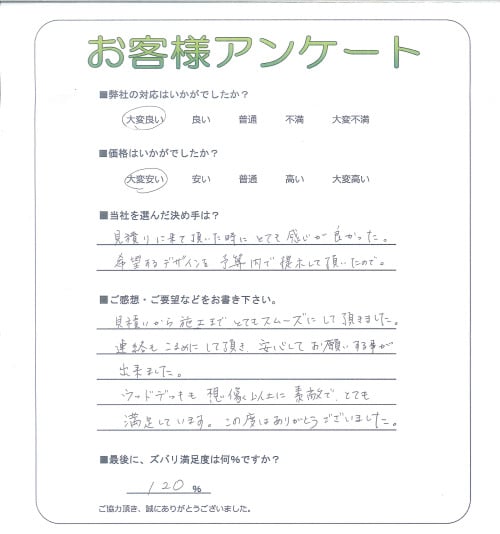 お客様アンケート
■弊社の対応はいかがでしたか?
大変良い 良い 普通 不満 大変不満
■価格はいかがでしたか?
大変安い 安い 普通 高い 大変高い
■当社を選んだ決め手は?
見積りに来て頂いた時に とても感じが良かった。
希望するデザインを 予算内で提示して頂いたので。
■ご感想・ご要望などをお書き下さい。
見積りから施工まで とてもスムーズにして頂きました。
連絡もこまめにして頂き、安心してお願いする事が
出来ました。
ウッドデッキも 想像以上に素敵で、とても
満足しています。この度はありがとうございました。
■最後に、ズバリ満足度は何%ですか?
120 %
ご協力頂き、誠にありがとうございました。